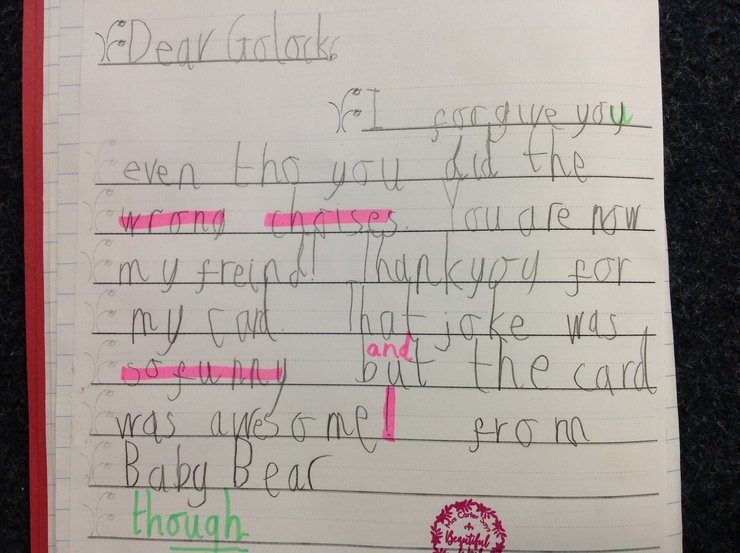 Dear Golocks
I forgive you
even tho you did the
wrong choises. You are now
my freind! Thankyoy for
my card. That joke was
and
so funny but the card
was awesome! from
Baby Bear
though
Beautiful